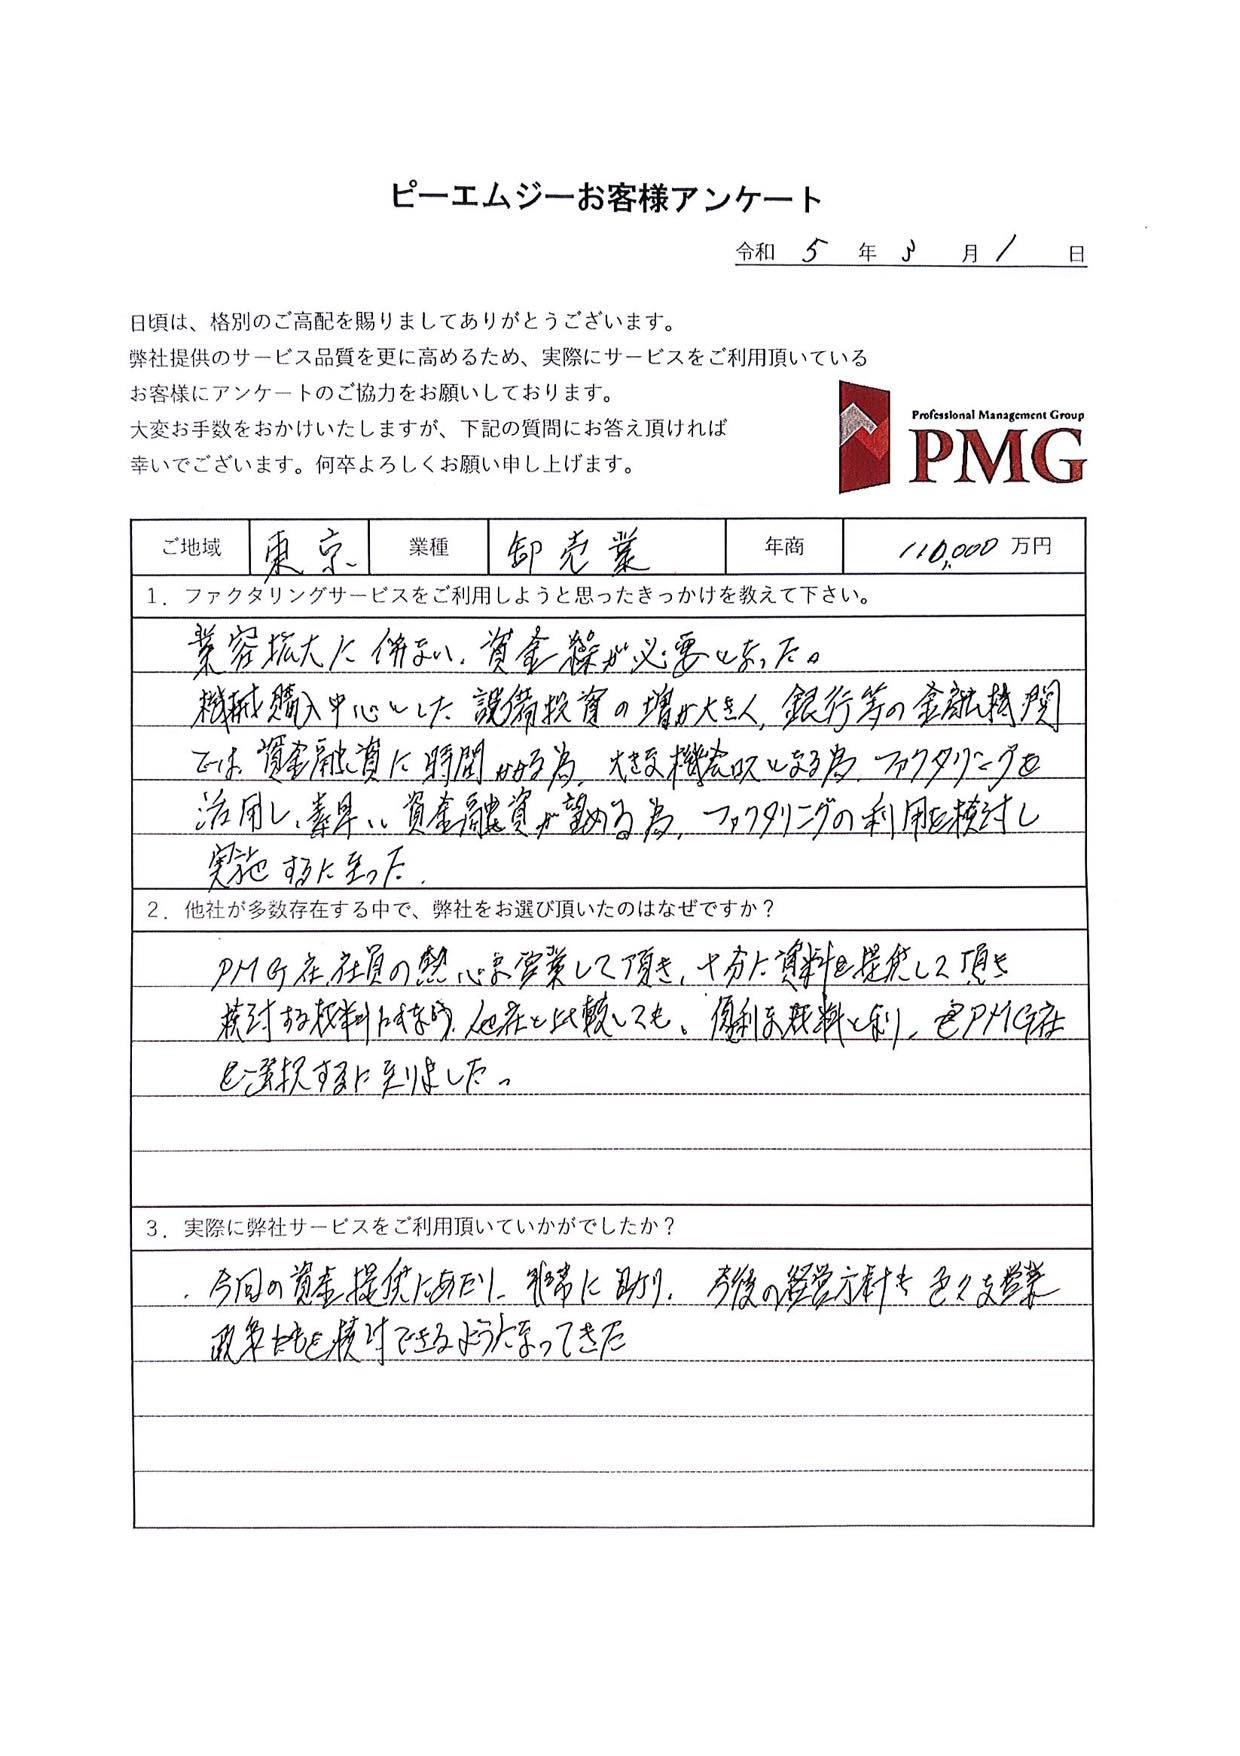 ピーエムジーお客様アンケート
令和 5 年 3 月 1 日
日頃は、格別のご高配を賜りましてありがとうございます。
弊社提供のサービス品質を更に高めるため、実際にサービスをご利用頂いている
お客様にアンケートのご協力をお願いしております。
大変お手数をおかけいたしますが、下記の質問にお答え頂ければ
幸いでございます。何卒よろしくお願い申し上げます。
Professional Management Group
PMG
ご地域 東京 業種 卸売業 年商 110,000 万円
1．ファクタリングサービスをご利用しようと思ったきっかけを教えて下さい。
業容拡大に併ない、資金繰が必要となった。
機械購入中心とした設備投資の増が大きく、銀行等の金融機関
では、資金融資に時間がかかる為、大きな機会ロスとなる為、ファクタリングを
活用し、素早い資金融資が望める為、ファクタリングの利用を検討し
実施するに至った。
2．他社が多数存在する中で、弊社をお選び頂いたのはなぜですか？
PMG社、社員の熱心な営業して頂き、十分に資料を提供して頂き
検討する材料になり、他社と比較しても、優利な 料となり、PMG社
を選択するに至りました。
3．実際に弊社サービスをご利用頂いていかがでしたか？
今回の資金提供にあたり、非常に助り、今後の経営方針も色々な営業
政策なども検討できるようになってきた